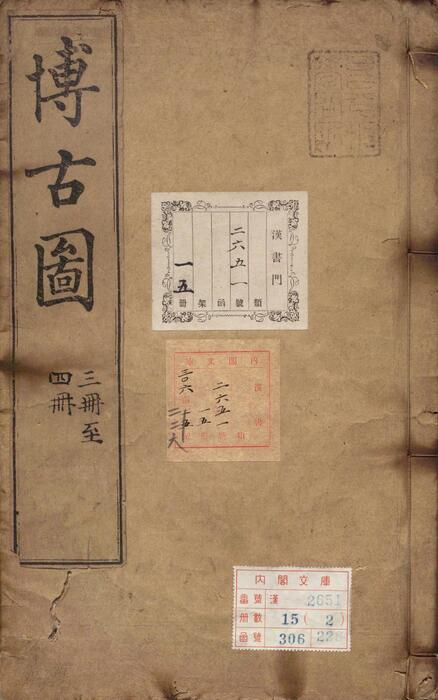 博古圖
三冊至
四冊
漢書門
二六五一
一五
類
號
函
架
冊
內閣文庫
漢書
二六五一
一五
三〇六
內閣文庫
番號 漢 2651
冊數 15(2)
函號 306